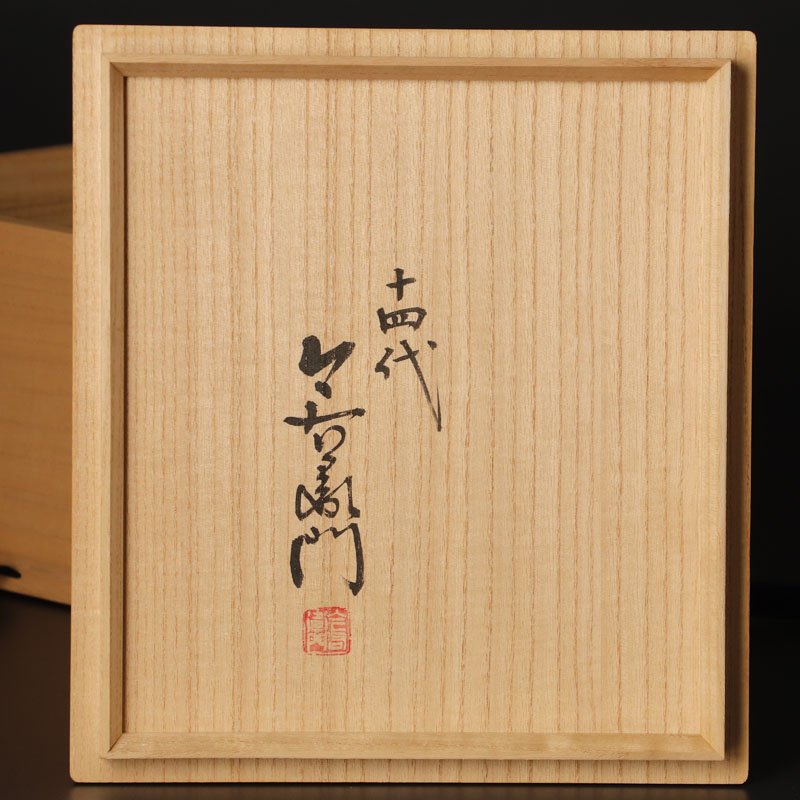 十四代
今右衛門